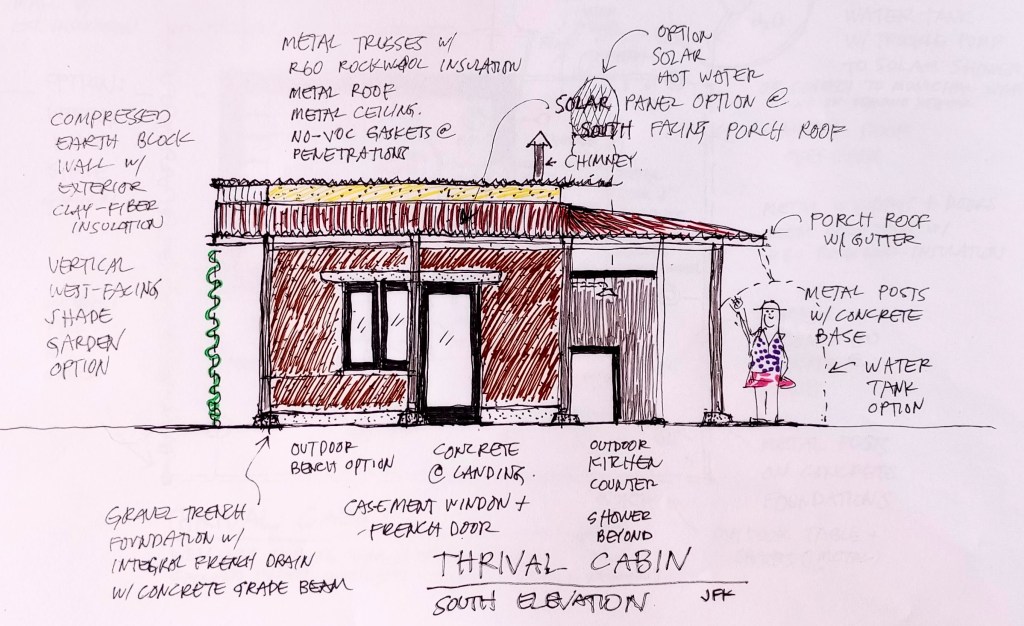 METAL TRUSSES W/
R60 ROCKWOOL INSULATION
METAL ROOF
METAL CEILING.
NO-VOC GASKETS @
PENETRATIONS
OPTION
SOLAR
HOT WATER
SOLAR PANEL OPTION @
SOUTH FACING PORCH ROOF
CHIMNEY
COMPRESSED
EARTH BLOCK
WALL W/
EXTERIOR
CLAY-FIBER
INSULATION
VERTICAL
WEST-FACING
SHADE
GARDEN
OPTION
PORCH ROOF
W/ GUTTER
METAL POSTS
W/ CONCRETE
BASE
WATER
TANK
OPTION
OUTDOOR
BENCH OPTION
CONCRETE
@ LANDING.
CASEMENT WINDOW +
FRENCH DOOR
OUTDOOR
KITCHEN
COUNTER
SHOWER
BEYOND
GRAVEL TRENCH
FOUNDATION W/
INTEGRAL FRENCH DRAIN
W/ CONCRETE GRADE BEAM
THRIVAL CABIN
SOUTH ELEVATION
JFK